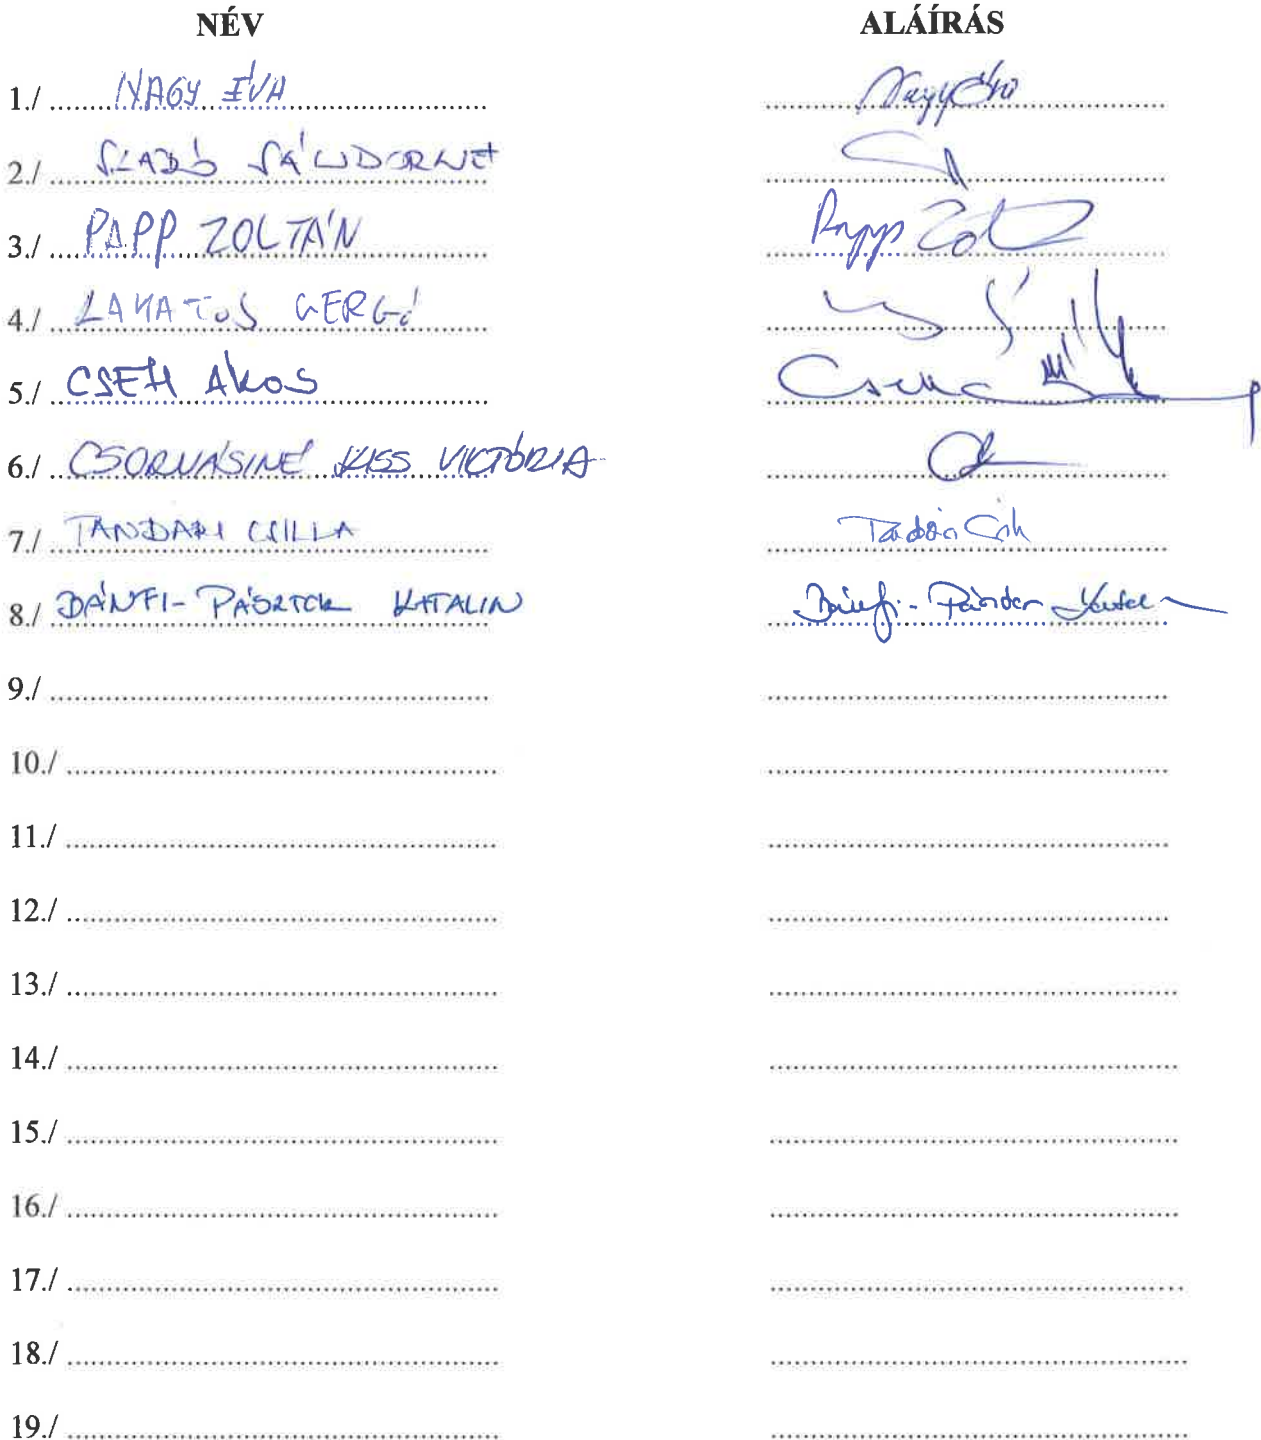 NÉV ALÁÍRÁS
1./ NAGY ÉVA Nagy Éva
2./ SZABÓ SÁNDORNÉ
3./ PAPP ZOLTÁN Papp Zolt
4./ LAKATOS GERGŐ
5./ CSEH ÁKOS
6./ CSORVÁSINÉ KISS VIKTÓRIA
7./ TANDARI CSILLA
8./ BÁNFI-PÁSZTOR KATALIN
9./
10./
11./
12./
13./
14./
15./
16./
17./
18./
19./